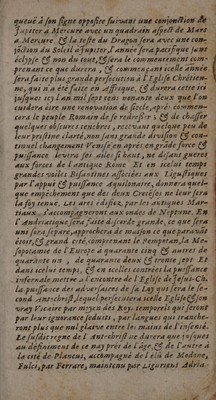 queuë à son signe opposite suivant une conjonction de
Jupiter à Mercure avec un quadrin aspect de Mars
à Mercure, & la teste du Dragon sera avec une con-
jonction du Soleil à Jupiter, l'année sera pacifique sans
eclypse & non du tout, & sera le commencement com-
prenant ce que durera, & commençant icelle année
sera faite plus grande persecution à l'Eglise Chrétien-
ne, qui n'a été faite en Affrique, & durera cette icy
jusques icy l'an mil sept cens nonante deux que l'on
cuidera être une renovation de siecle, aprés commen-
cera le peuple Romain de se redresser, & de chasser
quelques obscures tenebres, recevant quelque peu de
leur pristine clarté, non sans grande division & con-
tinuel changement Venise, en aprés en grãde force &
puissance levera ses aîles si haut, ne disant gueres
aux forces de l'antique Rome Et en iceluy temps
grandes voiles Bisantines associées aux Ligustiques
par l'appui & puissance Aquilonaire, donnera quel-
que empêchement que des deux Cretes ne leur sera
la foy tenuë. Les arcs édifiez par les antiques Mar-
tiaux, s'accompagneront aux ondes de Neptune. En
l'Andriatique sera faite discorde grande, ce que sera
uni sera separe, approchera de maison ce que paravãt
étoit, & grand cité, comprenant le Pempotam, la Me-
sopotamie de l'Europe à quarante cinq & autres de
quarante un, de quarante deux & trente sept. Et
dans icelus temps, & en icelles contrées la puissance
infernale mettra à l'encontre de l'Eglise de Jesus-Ch.
la puissance des adversaires de sa Loy qui sera le se-
cond antechrist, lequel persecutera icelle Eglise & son
vray Vicaire par moyen des Roys temporels qui seront
par leur ignorance seduits, par langues qui tranche-
ront plus que nul glaive entre les mains de l'insensé.
Le susdit regne de l'antechrist ne durera que jusques
au definiment de ce nay prés de l'âge, & de l'autre à
la cité de Plancus, accompagné de l'eslû de Modone,
Fulci, par Ferrare, maintenu par Liguriens Adria